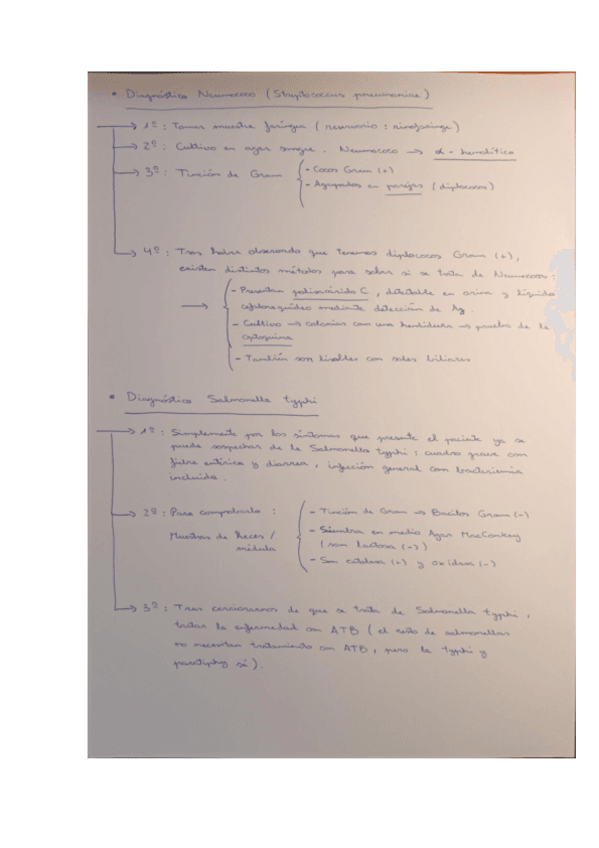 • Diagnóstico Neumococo (Streptococcus pneumoniae)
→ 1º: Tomar muestra faríngea (reservorio: rinofaringe)
→ 2º: Cultivo en agar sangre. Neumococo → α-hemolítico
→ 3º: Tinción de Gram
- Cocos Gram (+)
- Agrupados en parejas (diplococos)
→ 4º: Tras haber observado que tenemos diplococos Gram (+),
existen distintos métodos para saber si se trata de Neumococo:
→ - Presentan polisacárido C, detectable en orina y líquido
cefalorraquídeo mediante detección de Ag.
- Cultivo → colonias con una hendidura → prueba de la
optoquina
- También son lisables con sales biliares
• Diagnóstico Salmonella typhi
→ 1º: Simplemente por los síntomas que presente el paciente ya se
puede sospechar de la Salmonella typhi: cuadro grave con
fiebre entérica y diarrea, infección general con bacteriemia
incluida.
→ 2º: Para comprobarlo:
Muestras de heces/
médula
- Tinción de Gram → Bacilos Gram (-)
- Siembra en medio Agar MacConkey
(son lactosa (-))
- Son catalasa (+) y oxidasa (-)
→ 3º: Tras cerciorarnos de que se trata de Salmonella typhi,
tratar la enfermedad con ATB (el resto de salmonellas
no necesitan tratamiento con ATB, pero la typhi y
paratiphy sí).